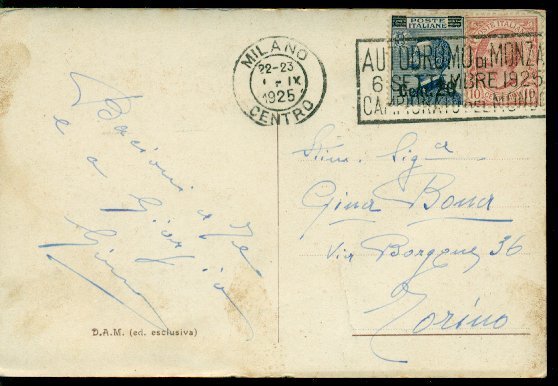 POSTE ITALIANE
MILANO
22-23
1 - IX
1925
CENTRO
AUTODROMO DI MONZA
6 SETTEMBRE 1925
CAMPIONATO DEL MONDO
Cent. 20
10
Bacioni a te
e a Giorgio
Gent. Sig.a
Gina Bona
Via Borgone 36
Torino
D.A.M. (ed. esclusiva)